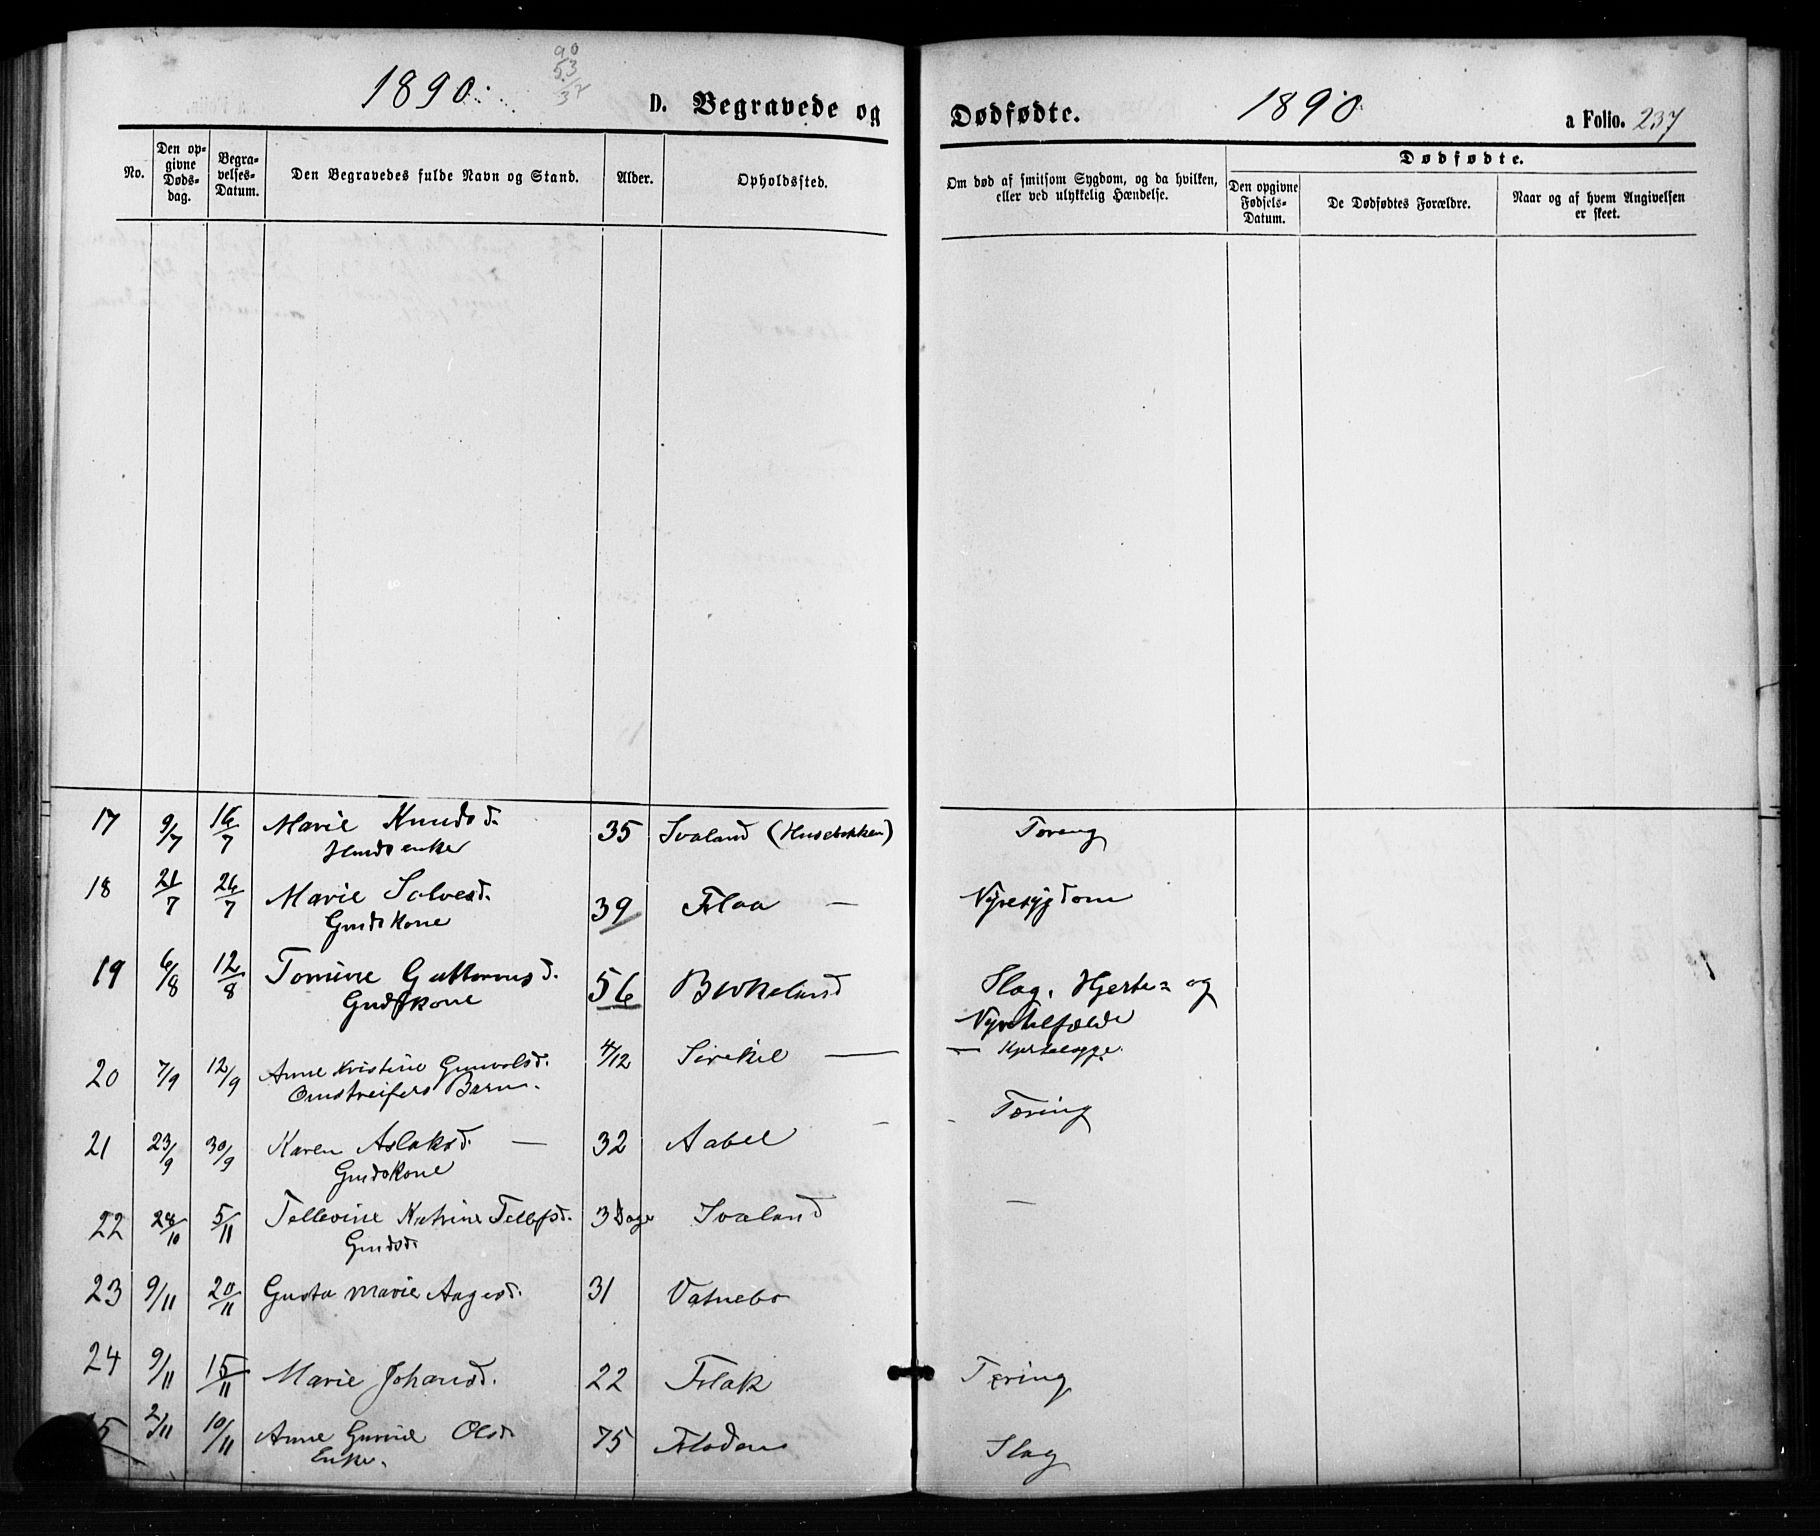 1890.
90
53
37
D. Begravede og
Dødfødte.
1890.
a Folio. 237
No.
Den op-
givne
Døds-
dag.
Begra-
velses-
Datum.
Den Begravedes fulde Navn og Stand.
Alder.
Opholdssted.
Om død af smitsom Sygdom, og da hvilken,
eller ved ulykkelig Hændelse.
Dødfødte.
Den opgivne
Fødsels-
Datum.
De Dødfødtes Forældre.
Naar og af hvem Angivelsen
er skeet.
17 9/7 16/7 Marie Knudsd. 35 Svaland (Husebakken) Tæring
Husenke
18 21/7 26/7 Marie Salvesd. 39 Flaa — Nyresygdom
Gmdskone
19 6/8 12/8 Tomine Guttormsd. 56 Birkeland Slag. Hjerte- og
Gmdskone Nyretilfælde
20 7/9 12/9 Anne Kristine Gunvolsd. 4/12 Sirekil —
Omstreifers Barn.
21 23/9 30/9 Karen Aslaksd. — 32 Aabel — Tæring
Gmdskone
22 28/10 5/11 Tellevine Katrine Tellefsd. 3 Dage Svaland —
Gmdsd.
23 9/11 20/11 Gusta Marie Aagesd. 31 Vatnebo
24 9/11 15/11 Marie Johansd. 22 Flak Tæring
5 2/11 10/11 Anne Gurine Olsd. 75 Fladen Slag
Enke.